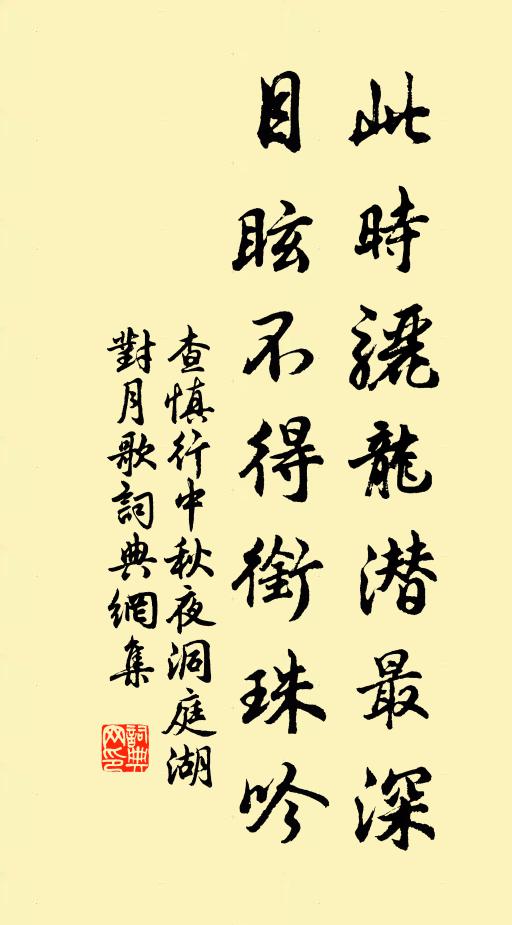 此時驪龍潜最深
目眩不得銜珠吟
查慎行中秋夜洞庭湖
對月歌詞典網集
詞典
网印